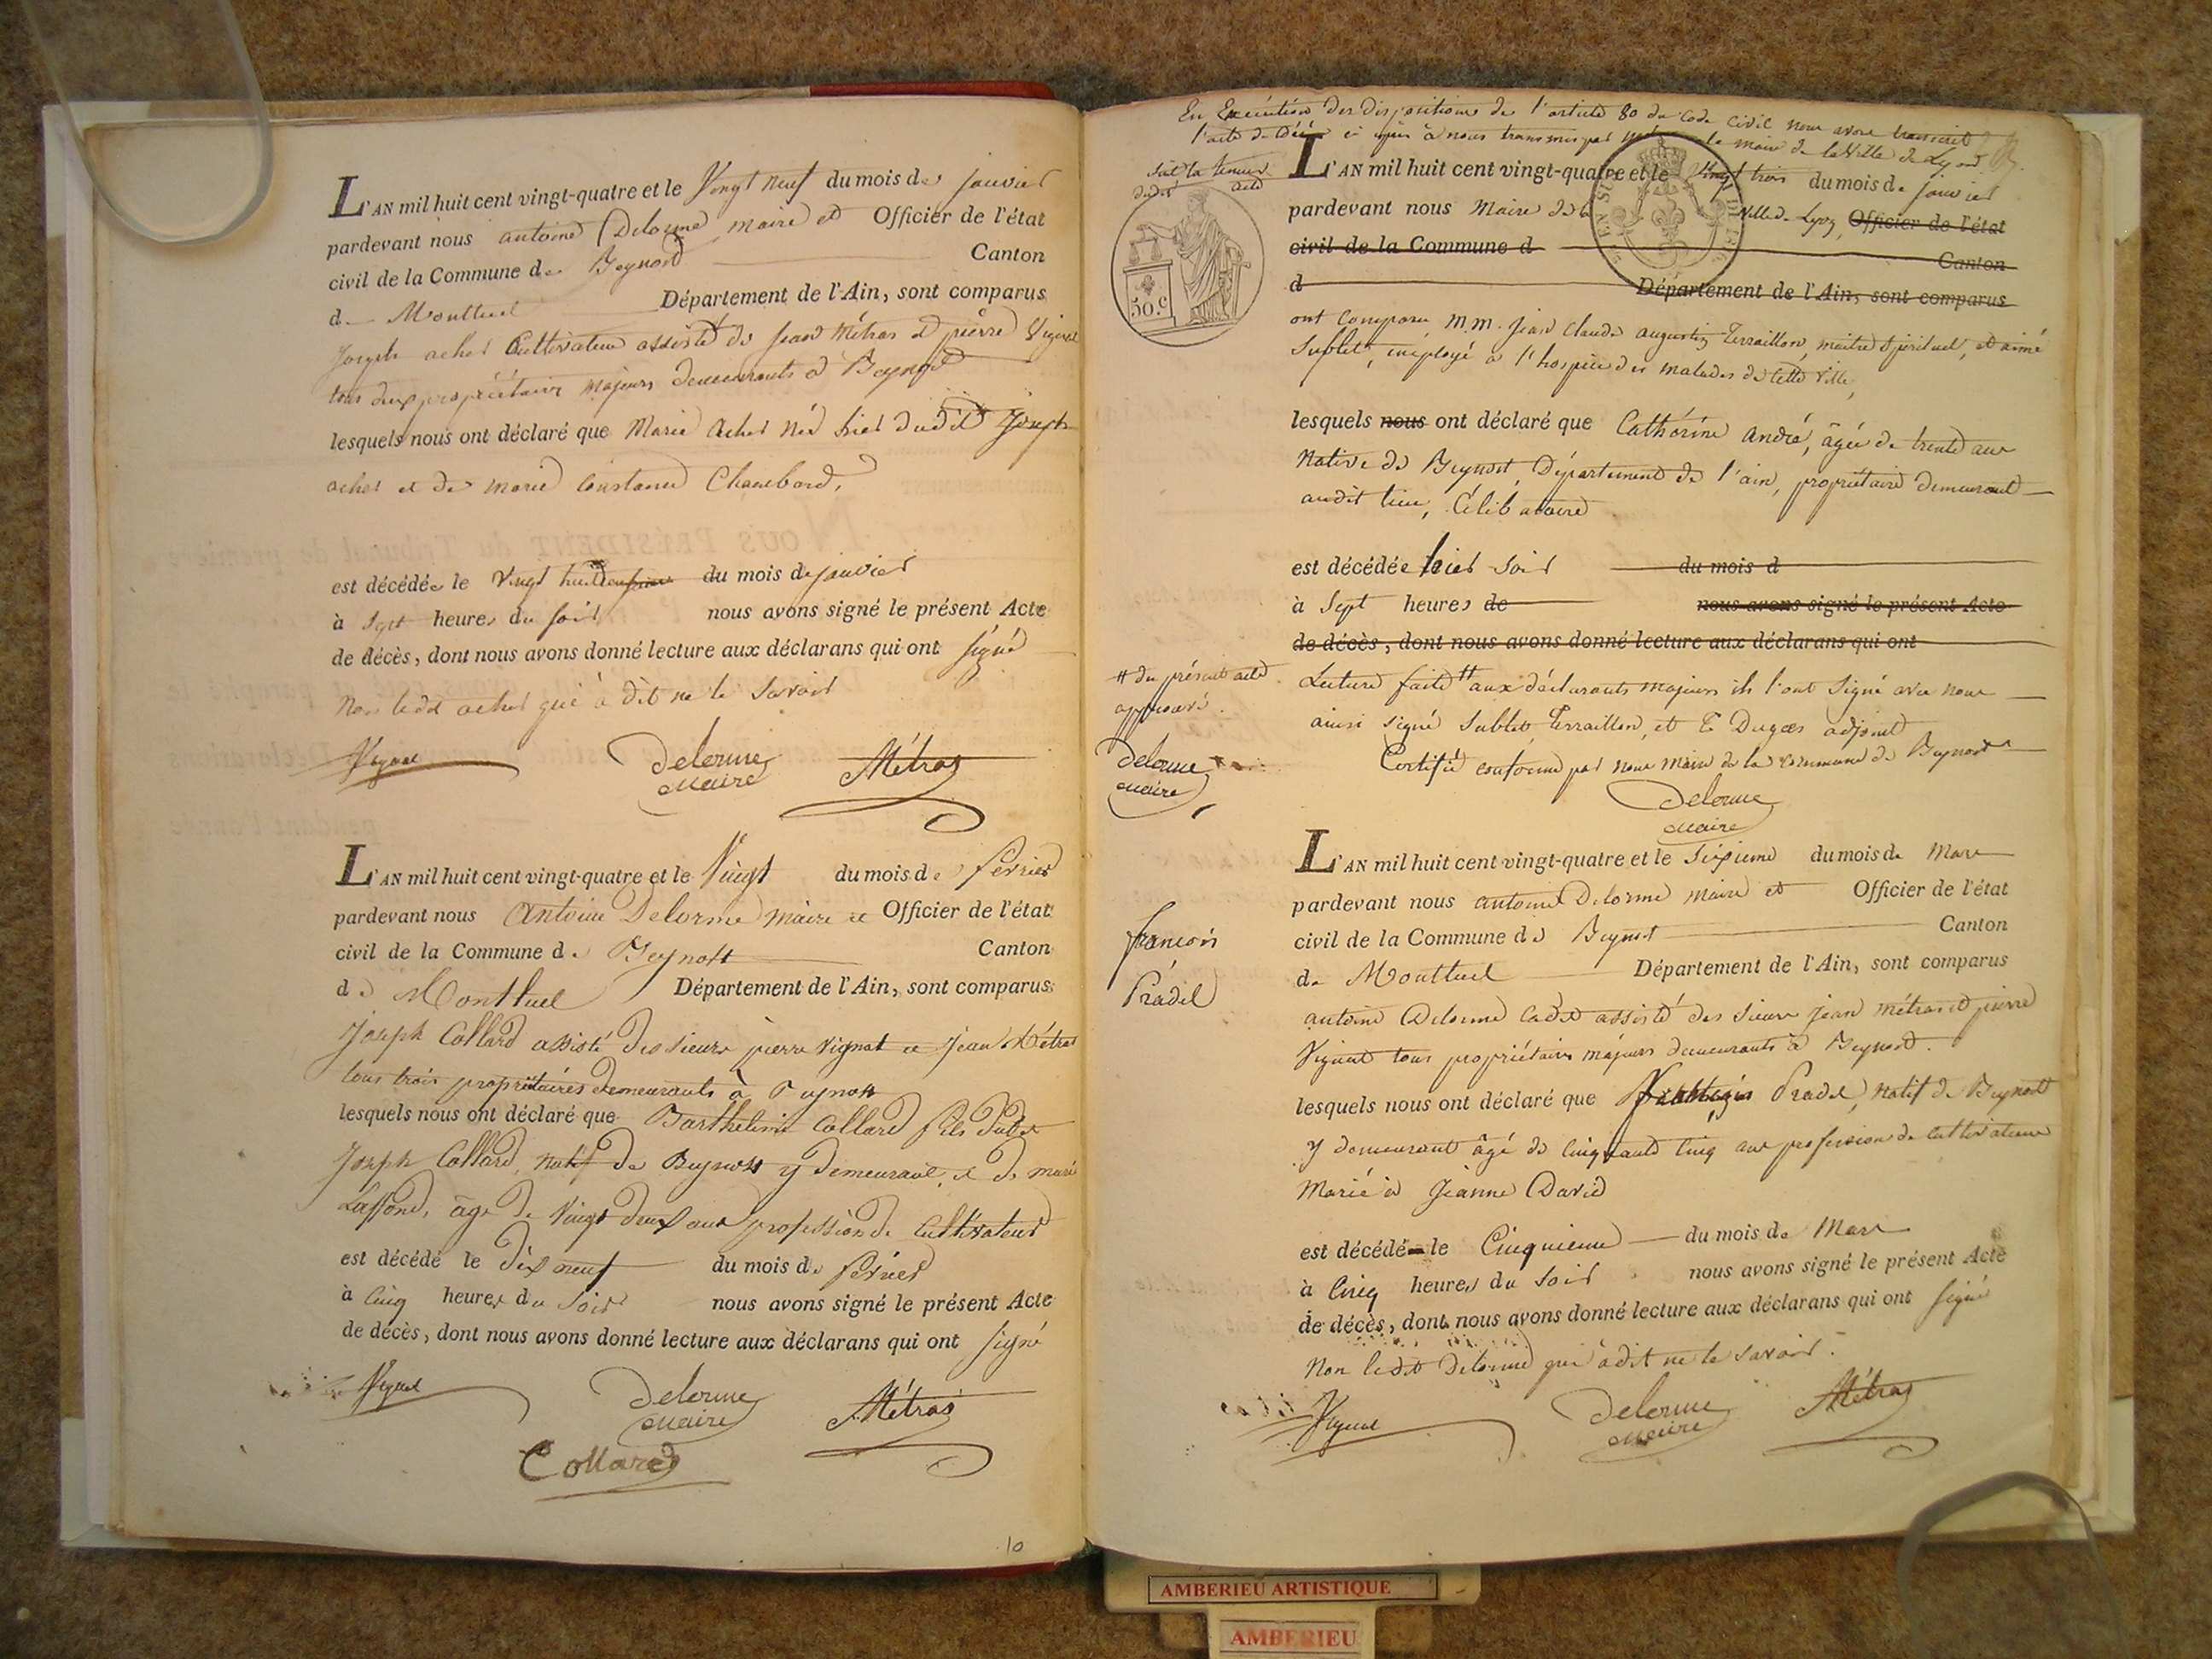 L'AN mil huit cent vingt-quatre et le Vingt neuf du mois de janvier
pardevant nous antoine Delorme maire et Officier de l'état
civil de la Commune de Beynost Canton
de Montluel Département de l'Ain, sont comparus
Joseph achet Cultivateur assisté de jean Métras et pierre Vignat
tous deux propriétaires majeurs demeurants à Beynost
lesquels nous ont déclaré que Marie achet née hier dudit Joseph
achet et de marie Constance Chambard,
est décédée le Vingt huit du mois de janvier
à Sept heures du soir nous avons signé le présent Acte
de décès, dont nous avons donné lecture aux déclarans qui ont signé
Non ledit achet qui a dit ne le savoir
Vignat Delorme Métras
maire
L'AN mil huit cent vingt-quatre et le Vingt du mois de fevrier
pardevant nous Antoine Delorme maire et Officier de l'état
civil de la Commune de Beynost Canton
de Montluel Département de l'Ain, sont comparus
Joseph Collard assisté des sieurs pierre Vignat et Jean Métras
tous trois propriétaires demeurants à Beynost
lesquels nous ont déclaré que Barthelimi Collard fils dudit
Joseph Collard, natif de Beynost y demeurant, et de marie
Laffond, âgé de Vingt deux ans profession de Cultivateur
est décédé le dix neuf du mois de févrer
à Cinq heures du Soir nous avons signé le présent Acte
de décès, dont nous avons donné lecture aux déclarans qui ont signé
Vignat Delorme Métras
maire
Collard
10
En Execution des dispositions de l'article 80 du Code Civil nous avons transcrit
l'acte de décès ci après à nous transmis par le maire de la Ville de Lyon
Suit la teneur
dudit acte
50.c
L'AN mil huit cent vingt-quatre et le Vingt trois du mois de janvier
pardevant nous Maire de la Ville de Lyon, Officier de l'état
civil de la Commune d Canton
d Département de l'Ain, sont comparus
ont Comparu M.M. jean Claude augustin Terraillon, maitre spirituel, et aimé
Sublet, employé à l'hospice des malades de cette Ville,
lesquels nous ont déclaré que Cathérine André, âgée de trente ans
Native de Beynost, Département de l'ain, propriétaire demeurant
audit lieu, Célibataire
est décédée hier soir du mois d
à Sept heures de nous avons signé le présent Acte
de décès, dont nous avons donné lecture aux déclarans qui ont
# du présent acte
approuvé.
Delorme
maire
Lecture faite # aux déclarants majeurs ils l'ont Signé avec nous
ainsi signé Sublet, Terraillon, et E Dugas adjoint
Certifié conforme par nous maire de la commune de Beynost
Delorme
maire
L'AN mil huit cent vingt-quatre et le Sixieme du mois de Mars
pardevant nous antoine Delorme maire et Officier de l'état
civil de la Commune de Beynost Canton
de Montluel Département de l'Ain, sont comparus
françois
Pradel
antoine Delorme Cadet assisté des sieurs jean métras et pierre
Vignat tous propriétaires majeurs demeurants à Beynost.
lesquels nous ont déclaré que Pradel, natif de Beynost
y demeurant âgé de Cinquante Cinq ans profession de Cultivateur
Marié à Jeanne David
est décédé le Cinquieme du mois de Mars
à Cinq heures du Soir nous avons signé le présent Acte
de décès, dont nous avons donné lecture aux déclarans qui ont signé
Non ledit Delorme qui à dit ne le savoir.
Vignat Delorme Métras
maire
AMBERIEU ARTISTIQUE
AMBERIEU